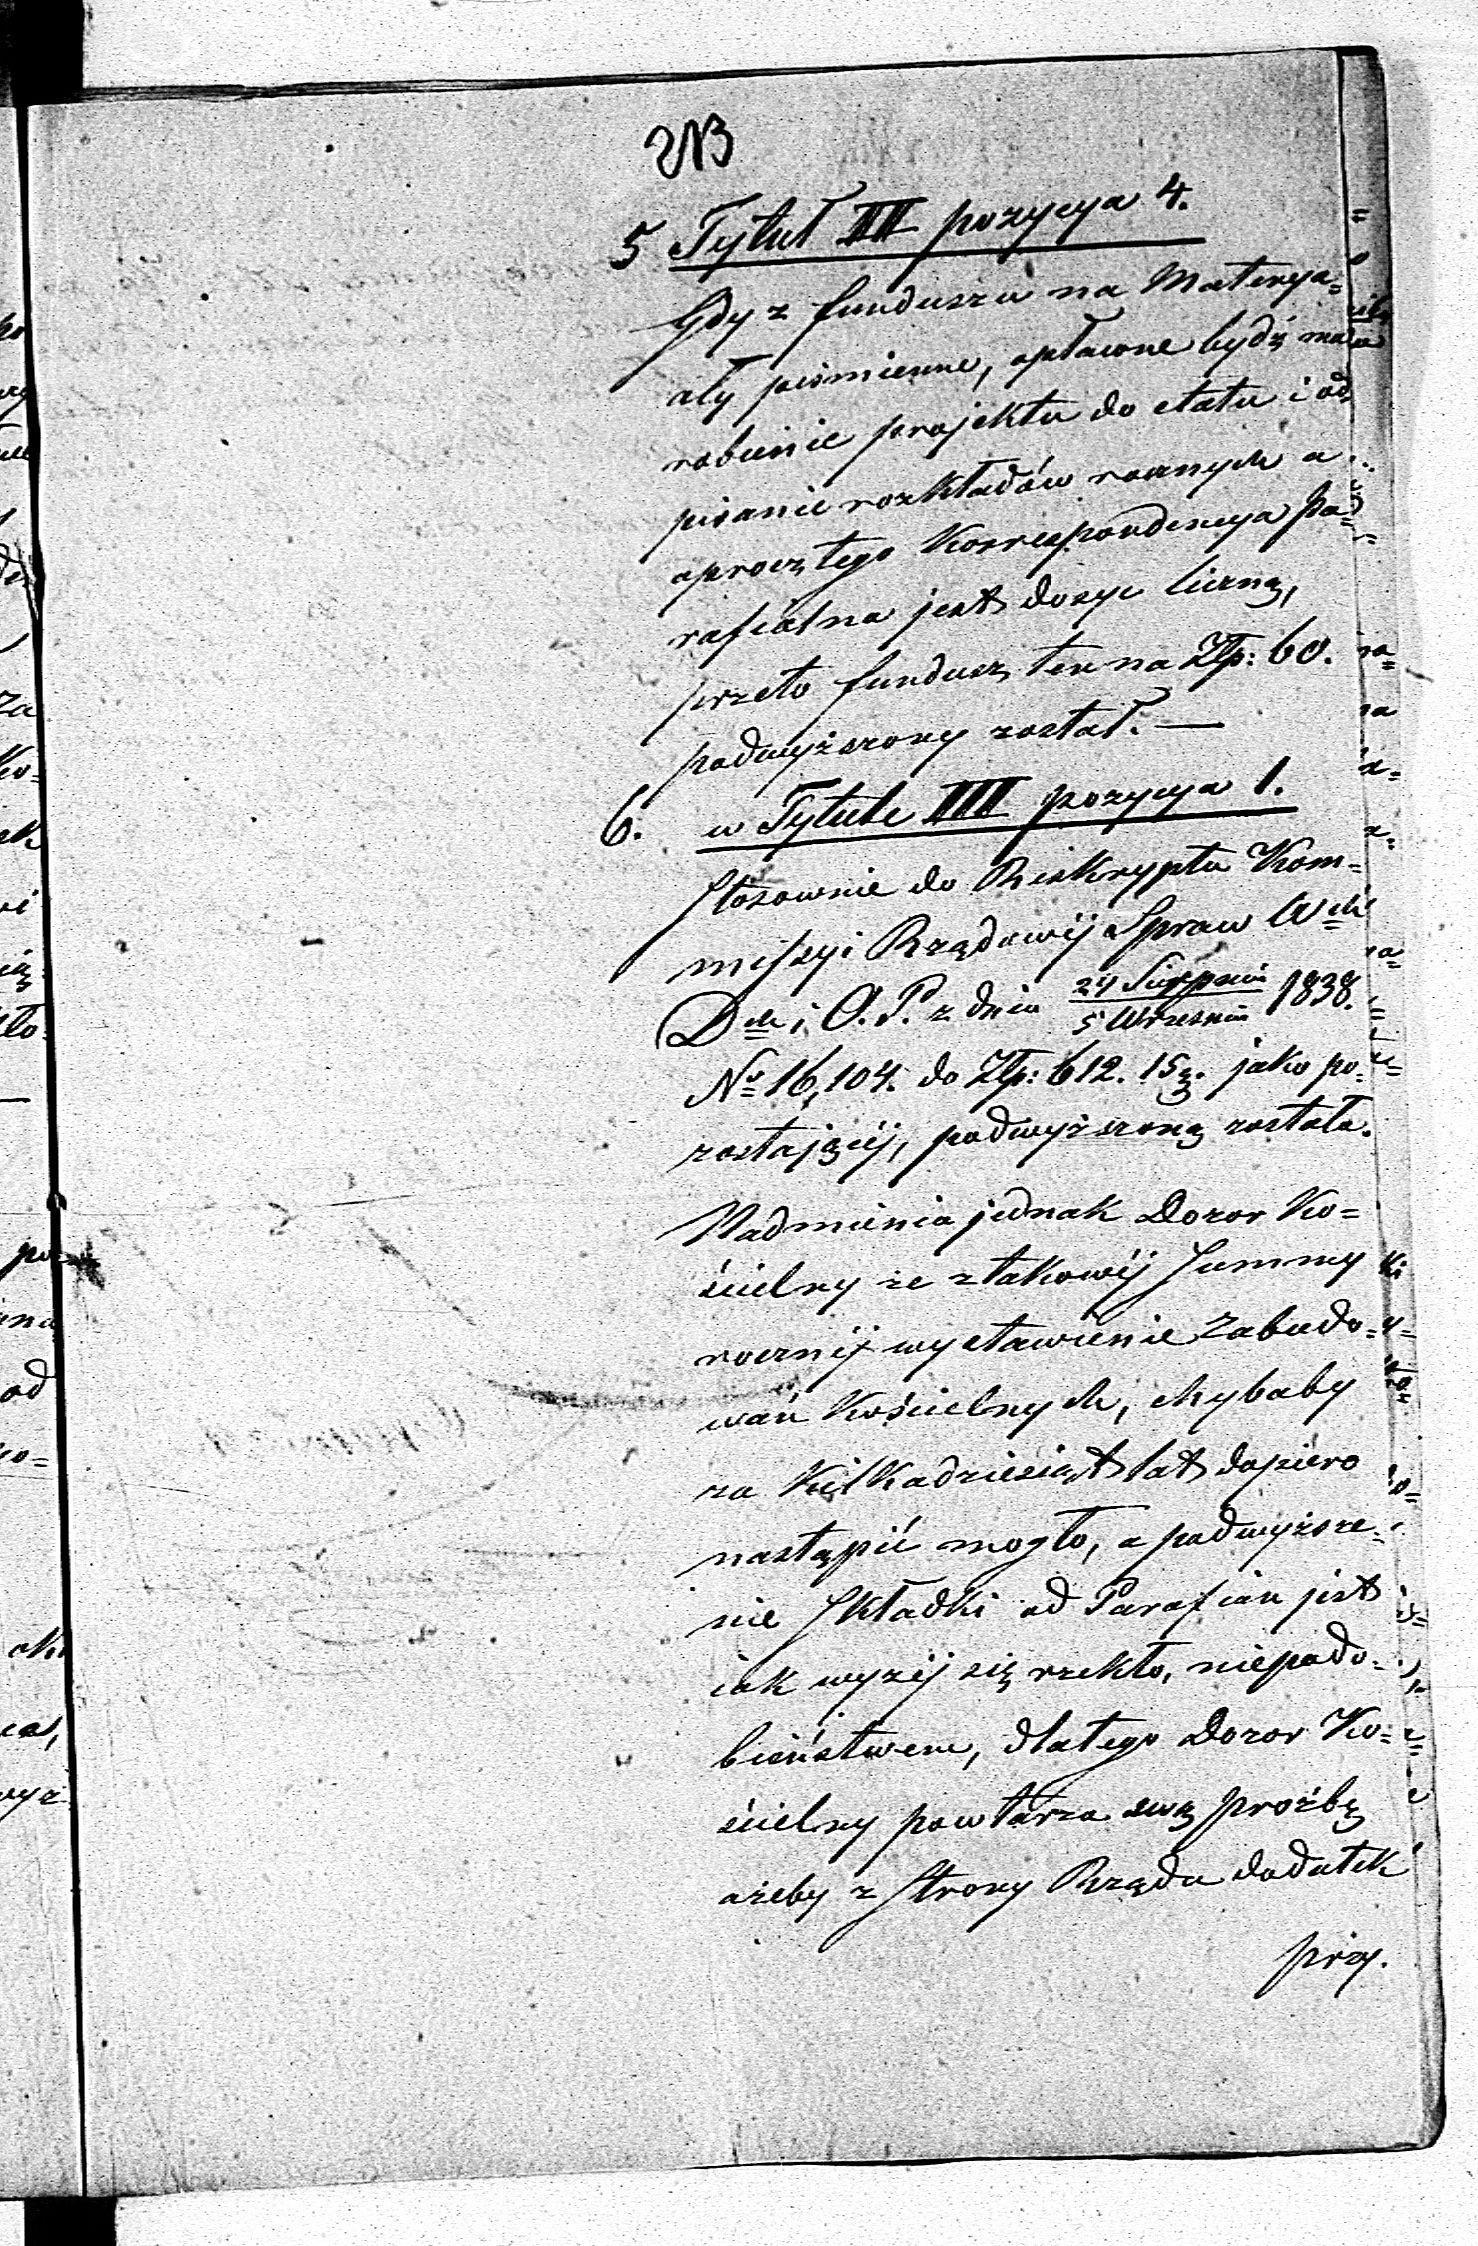 NB
5 Tytuł III pozycya 4.
Gdy z funduszu na Materya=
ały piśmienne, opłacone bydź ma
robienie projektu do etatu i od
pisanie rozkładów rocznych a
oprocz tego Korrespondencya Pa=
rafialna jest dosyc liczną,
przeto fundusz ten na Złp: 60.
podwyższony został. —
6. w Tytule III pozycya 1.
Stosownie do Reskryptu Kom=
missyi Rządowéj Spraw Wch
Dch i O. P. z dnia 24 Sierpnia / 5 Września 1838.
No 16,104. do Złp: 612. 15g. jako po=
zostajęcéj, podwyższoną została.
Nadmienia jednak Dozor Ko=
ścielny że z takowéj Summy
rocznéj wystawienie Zabudo=
wań Kościelnych, chybaby
za Kilkadziesiąt lat dopiero
nastąpić mogło, a podwyższe=
nie Składki od Parafian jest
iak wyzéj się rzekło, niepodo=
bieństwem, dlatego Dozor Ko=
ścielny powtarza swą prozbę
ażeby z Strony Rządu dodatek
przy.